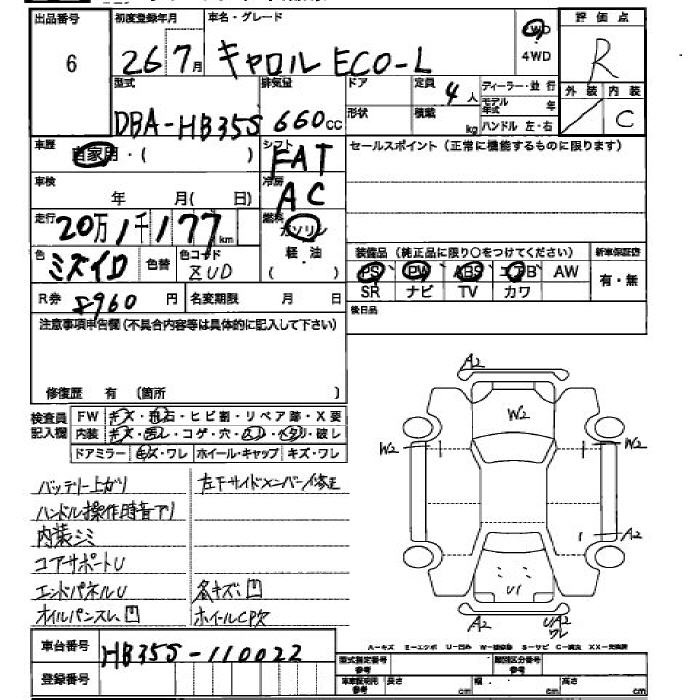 出品番号 初度登録年月 車名・グレード 評価点
6 26 7月 キャロル ECO-L 4WD R
型式 排気量 ドア 定員 4人 ディーラー・並行 外装 内装
DBA-HB35S 660cc 形状 積載 kg モデル年式 年 C
ハンドル 左・右
車歴 自家用・( ) シフト FAT セールスポイント(正常に機能するものに限ります)
車検 年 月( 日) 冷房 AC
走行 20万1千177km 燃料 ガソリン
軽・油
( )
色 ミズイロ 色替 色コード ZUD
装備品(純正品に限り○をつけてください) 新車保証書
PS PW ABS エアB AW 有・無
SR ナビ TV カワ
R券 8960円 名変期限 月 日
後日品
注意事項申告欄(不具合内容等は具体的に記入して下さい)
修復歴 有 〔箇所 〕
検査員記入欄 FW キズ・飛石・ヒビ割・リペア跡・X要
内装 キズ・汚レ・コゲ・穴・スレ・ヘタリ・破レ
ドアミラー キズ・ワレ ホイール・キャップ キズ・ワレ
バッテリー上がり 左下サイドメンバー修正
ハンドル操作時音アリ
内装シミ
コアサポートU
エンドパネルU 各キズ凹
オイルパンスレ凹 ホイールCP欠
A2
W2
W2 W2
1 A2
U1
A2 U/A2
ワレ
A-キズ E-エクボ U-凹み W-補修跡 S-サビ C-腐食 XX-交換済
車台番号 HB35S-110022
登録番号
型式指定番号 参考 類別区分番号 参考
車車証明用 参考 長さ cm 幅 cm 高さ cm